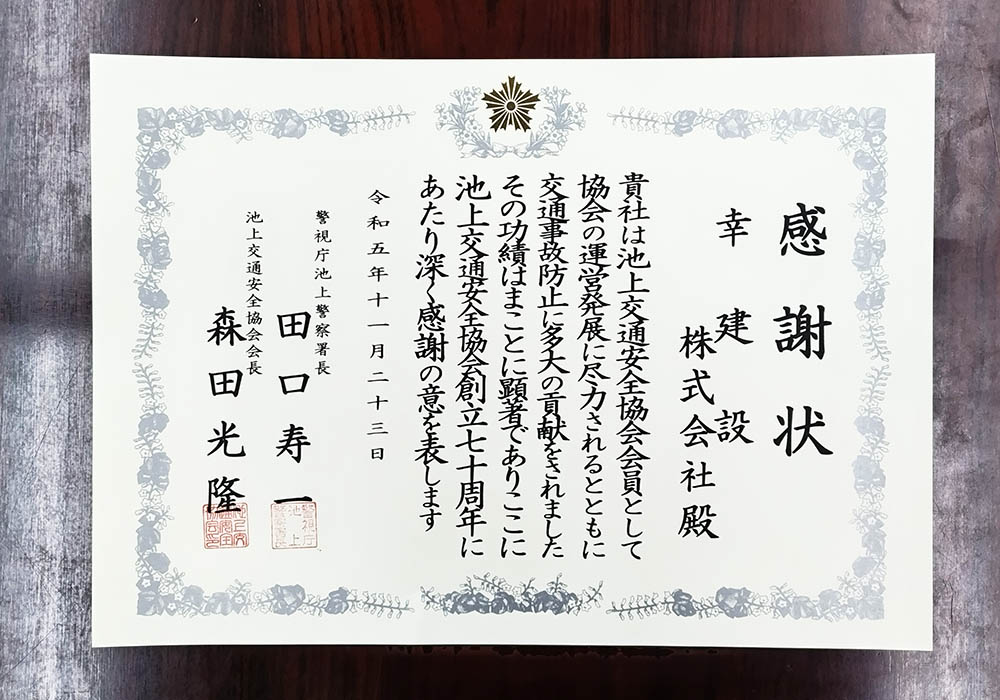 感謝状
幸建設
株式会社殿
貴社は池上交通安全協会会員として
協会の運営発展に尽力されるとともに
交通事故防止に多大の貢献をされました
その功績はまことに顕著でありここに
池上交通安全協会創立七十周年に
あたり深く感謝の意を表します
令和五年十一月二十三日
警視庁池上警察署長
田口寿一
池上交通安全協会会長
森田光隆